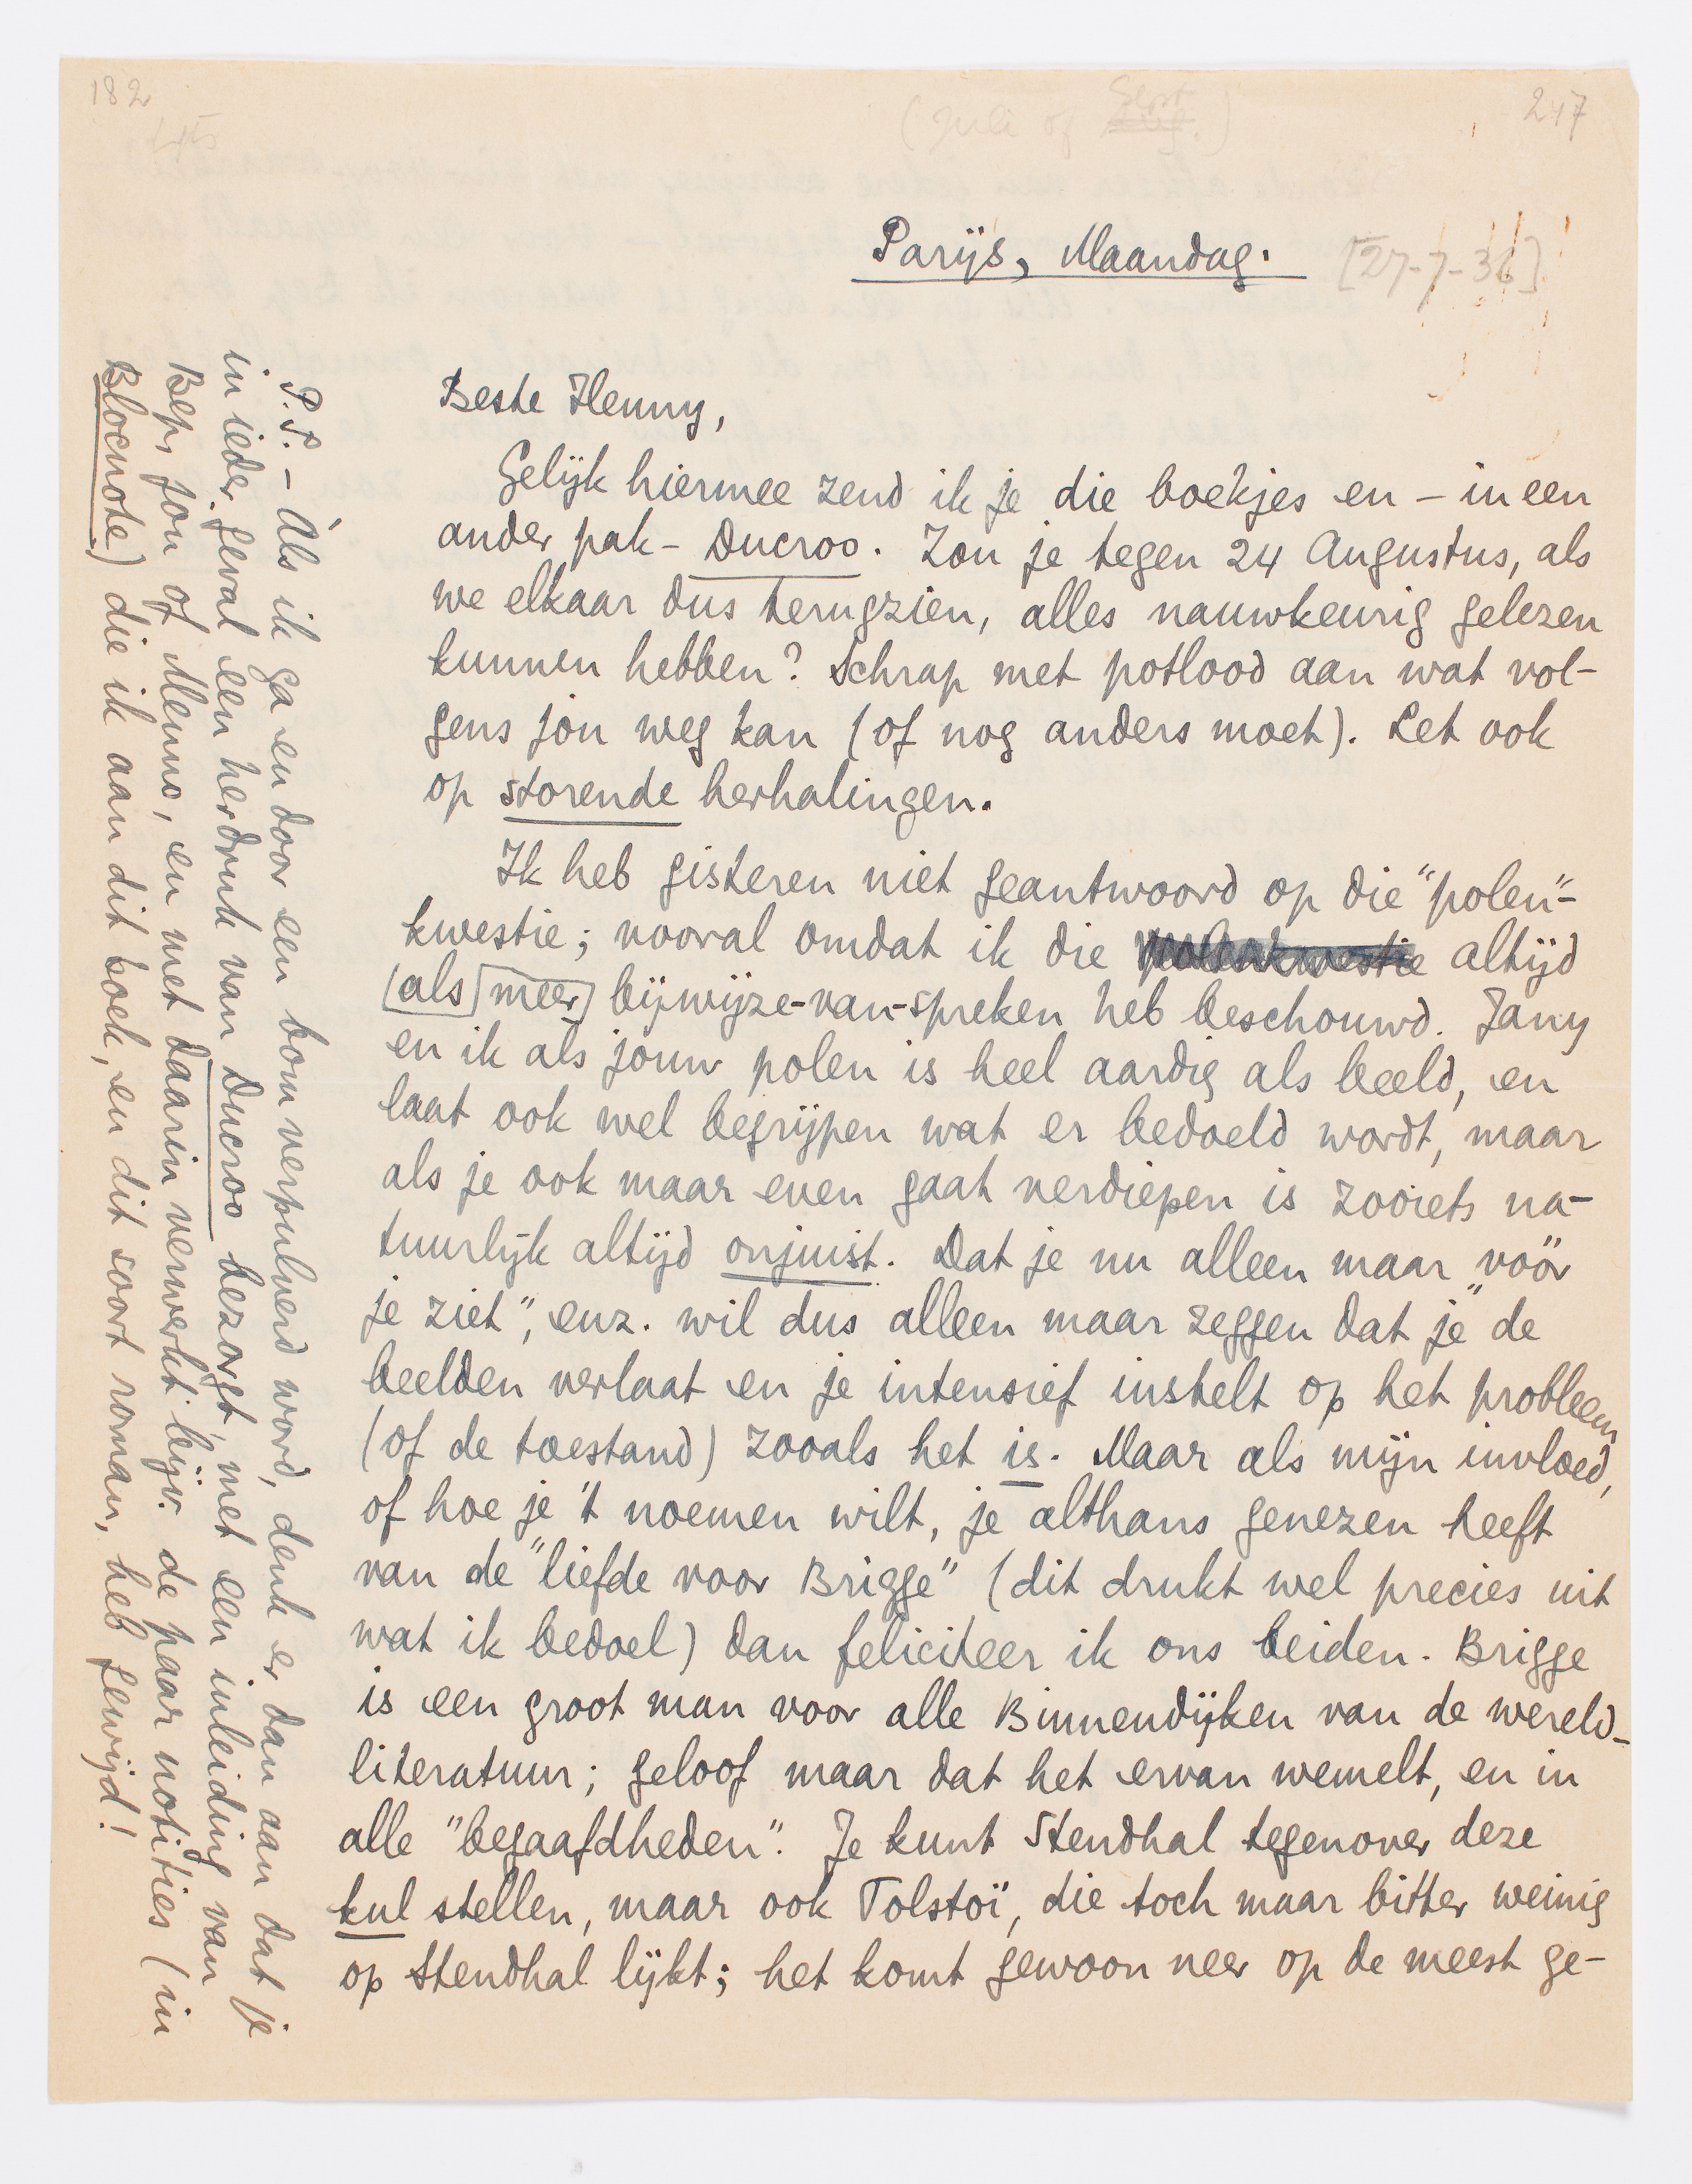 182
(Juli of Sept.)
247
Parijs, Maandag.
[27-7-36]
Beste Henny,
Gelijk hiermee zend ik je die boekjes en – in een
ander pak – Ducroo. Zou je tegen 24 Augustus, als
we elkaar dus terugzien, alles nauwkeurig gelezen
kunnen hebben? Schrap met potlood aan wat vol-
gens jou weg kan (of nog anders moet). Let ook
op storende herhalingen.
Ik heb gisteren niet geantwoord op die "polen"-
kwestie; vooral omdat ik die altijd
(als meer) bij wijze-van-spreken heb beschouwd. Jany
en ik als jouw polen is heel aardig als beeld, en
laat ook wel begrijpen wat er bedoeld wordt, maar
als je ook maar even gaat verdiepen is zooiets na-
tuurlijk altijd onjuist. Dat je nu alleen maar "vóór
je ziet", enz. wil dus alleen maar zeggen dat je de
beelden verlaat en je intensief instelt op het probleem
(of de toestand) zooals het is. Maar als mijn invloed,
of hoe je 't noemen wilt, je althans genezen heeft
van de "liefde voor Brigge" (dit drukt wel precies uit
wat ik bedoel) dan feliciteer ik ons beiden. Brigge
is een groot man voor alle Binnendijken van de wereld-
literatuur; geloof maar dat het ervan wemelt, en in
alle "begaafdheden". Je kunt Stendhal tegenover deze
kul stellen, maar ook Tolstoï, die toch maar bitter weinig
op Stendhal lijkt; het komt gewoon neer op de meest ge-
P.S. – Als ik ga en door een bom verpulverd word, denk er dan aan dat je
in ieder geval een herdruk van Ducroo bezorgt, met een inleiding van
Bep, jou of Menno, en met daarin verwerkt bijv. de paar notities (in
Blocnote) die ik aan dit boek, en dit soort roman, heb gewijd!